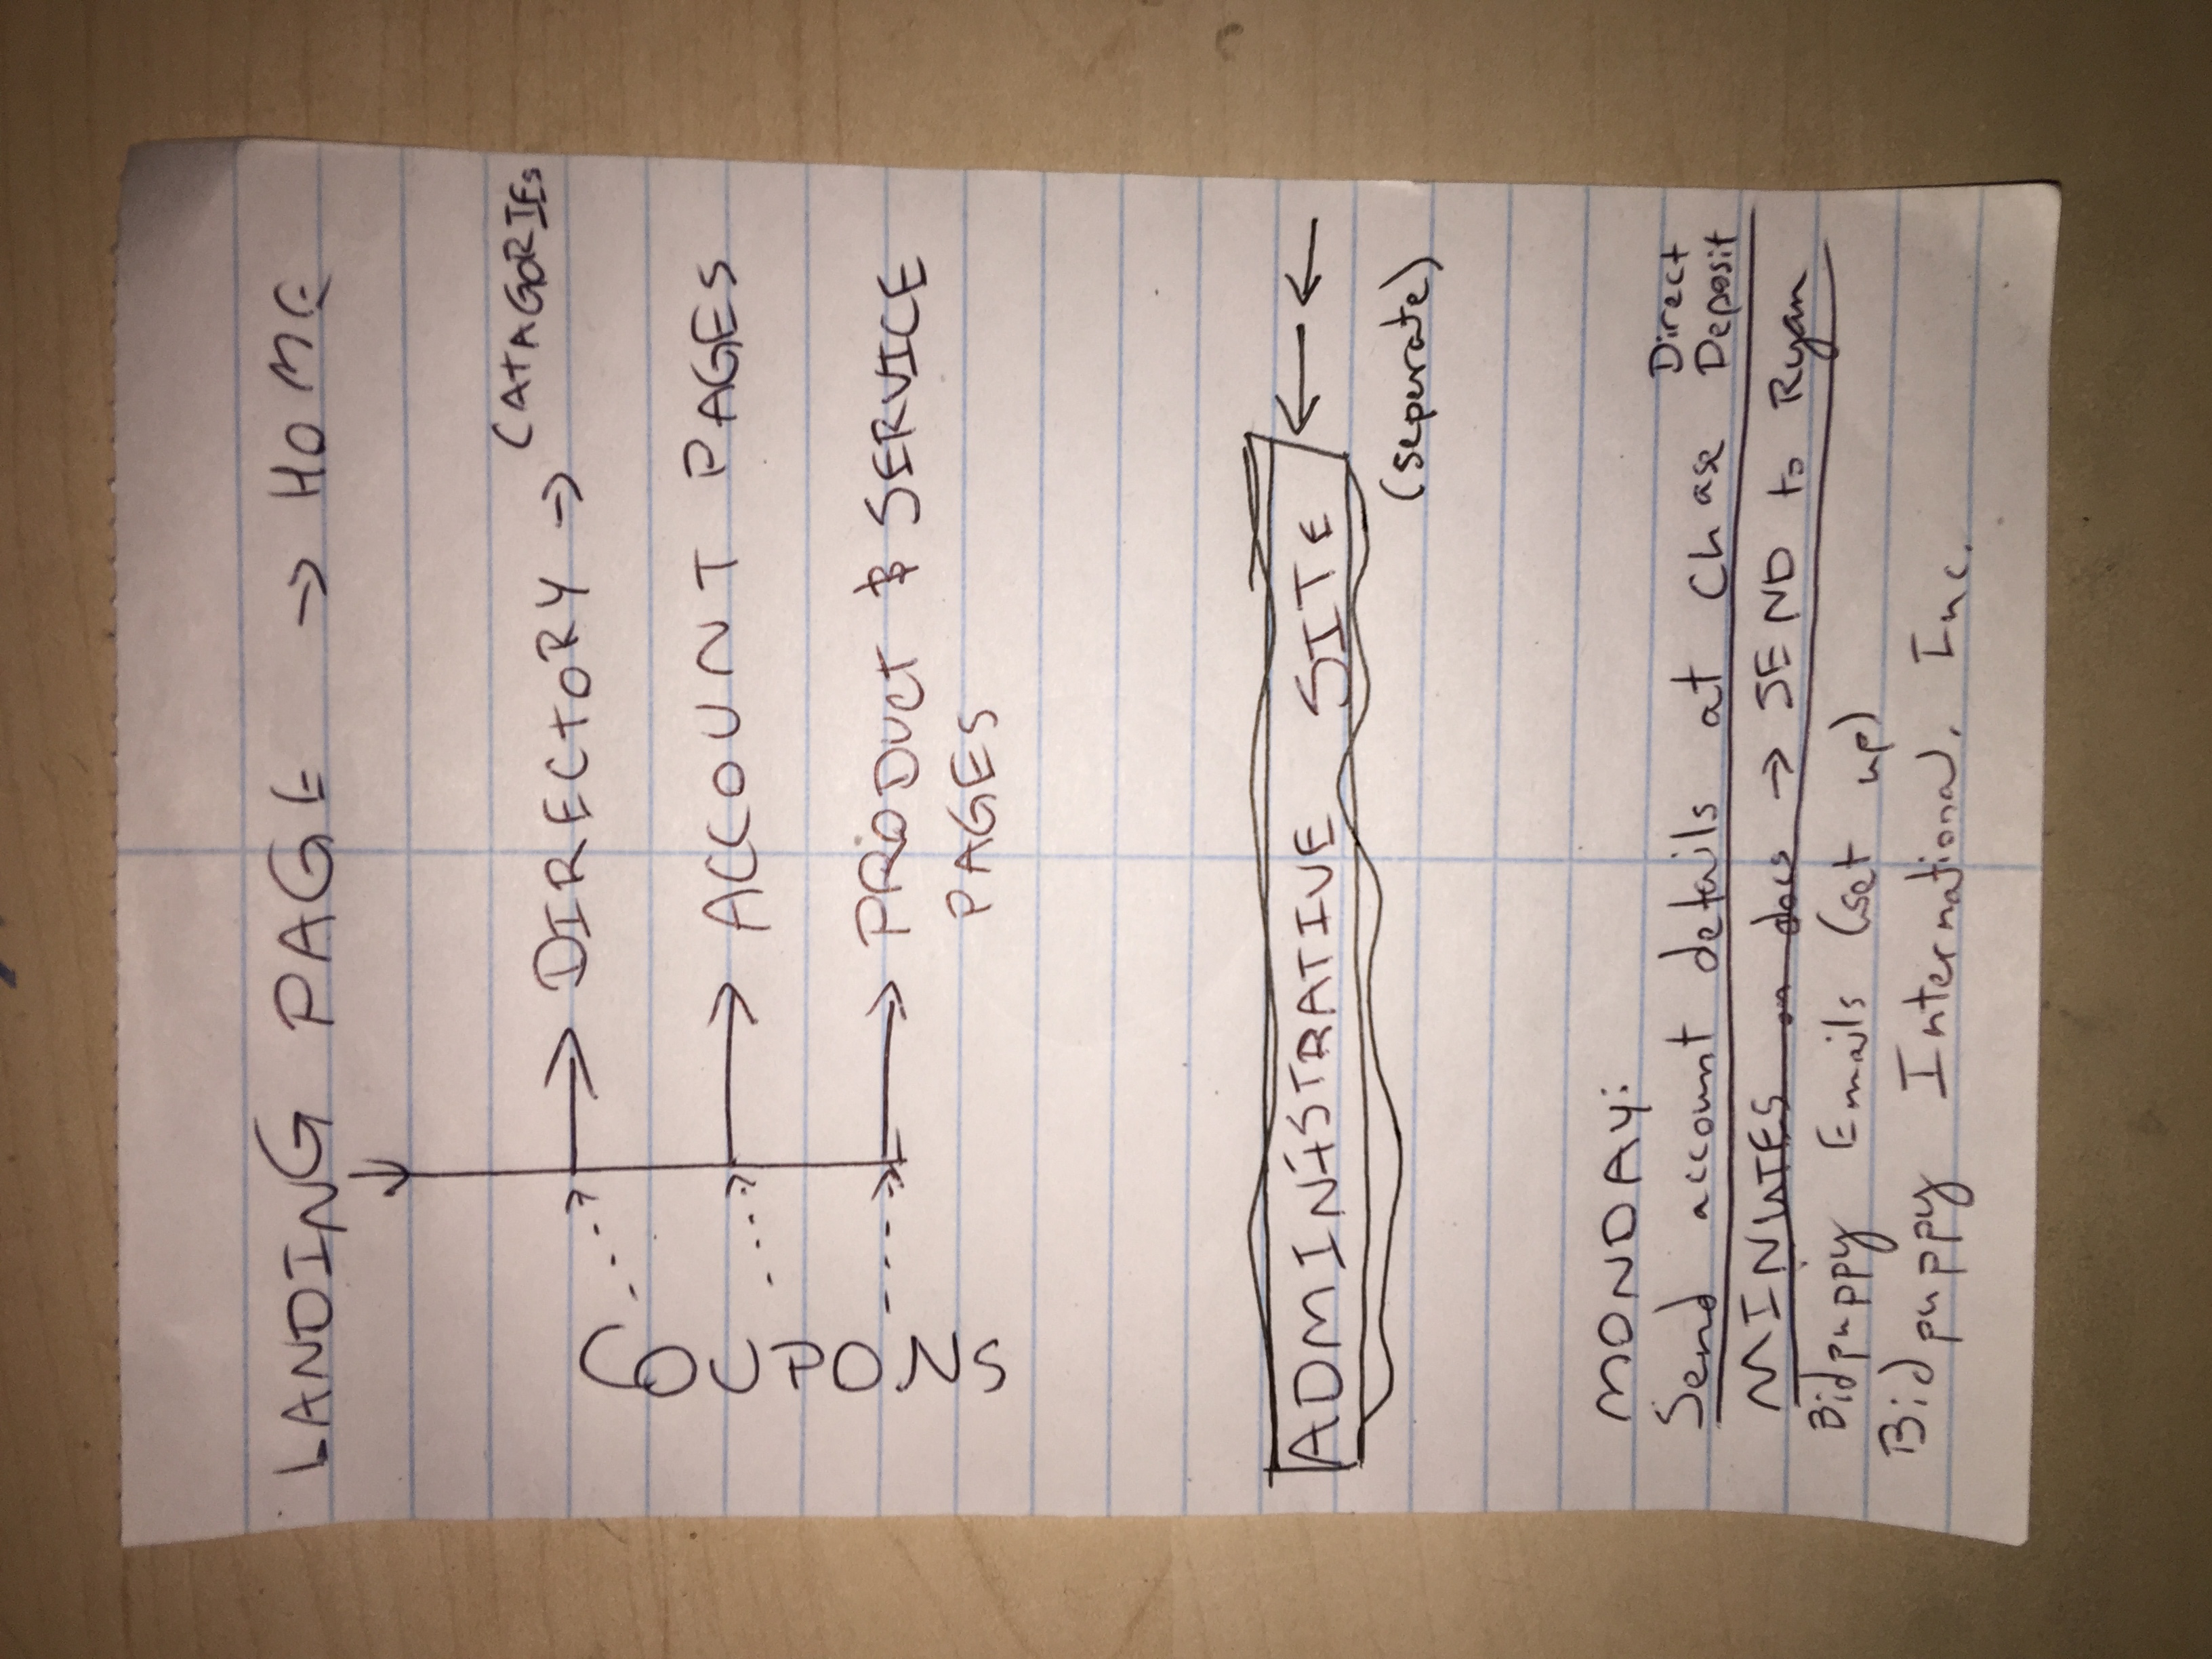 LANDING PAGE → HOME
CATAGORIES
DIRECTORY →
COUPONS
ACCOUNT PAGES
PRODUCT & SERVICE
PAGES
ADMINISTRATIVE SITE
(seperate)
MONDAY:
Send account details at Chase Direct Deposit
MINUTES on docs → SEND to Ryan
Bidpuppy Emails (set up)
Bidpuppy International. Inc.